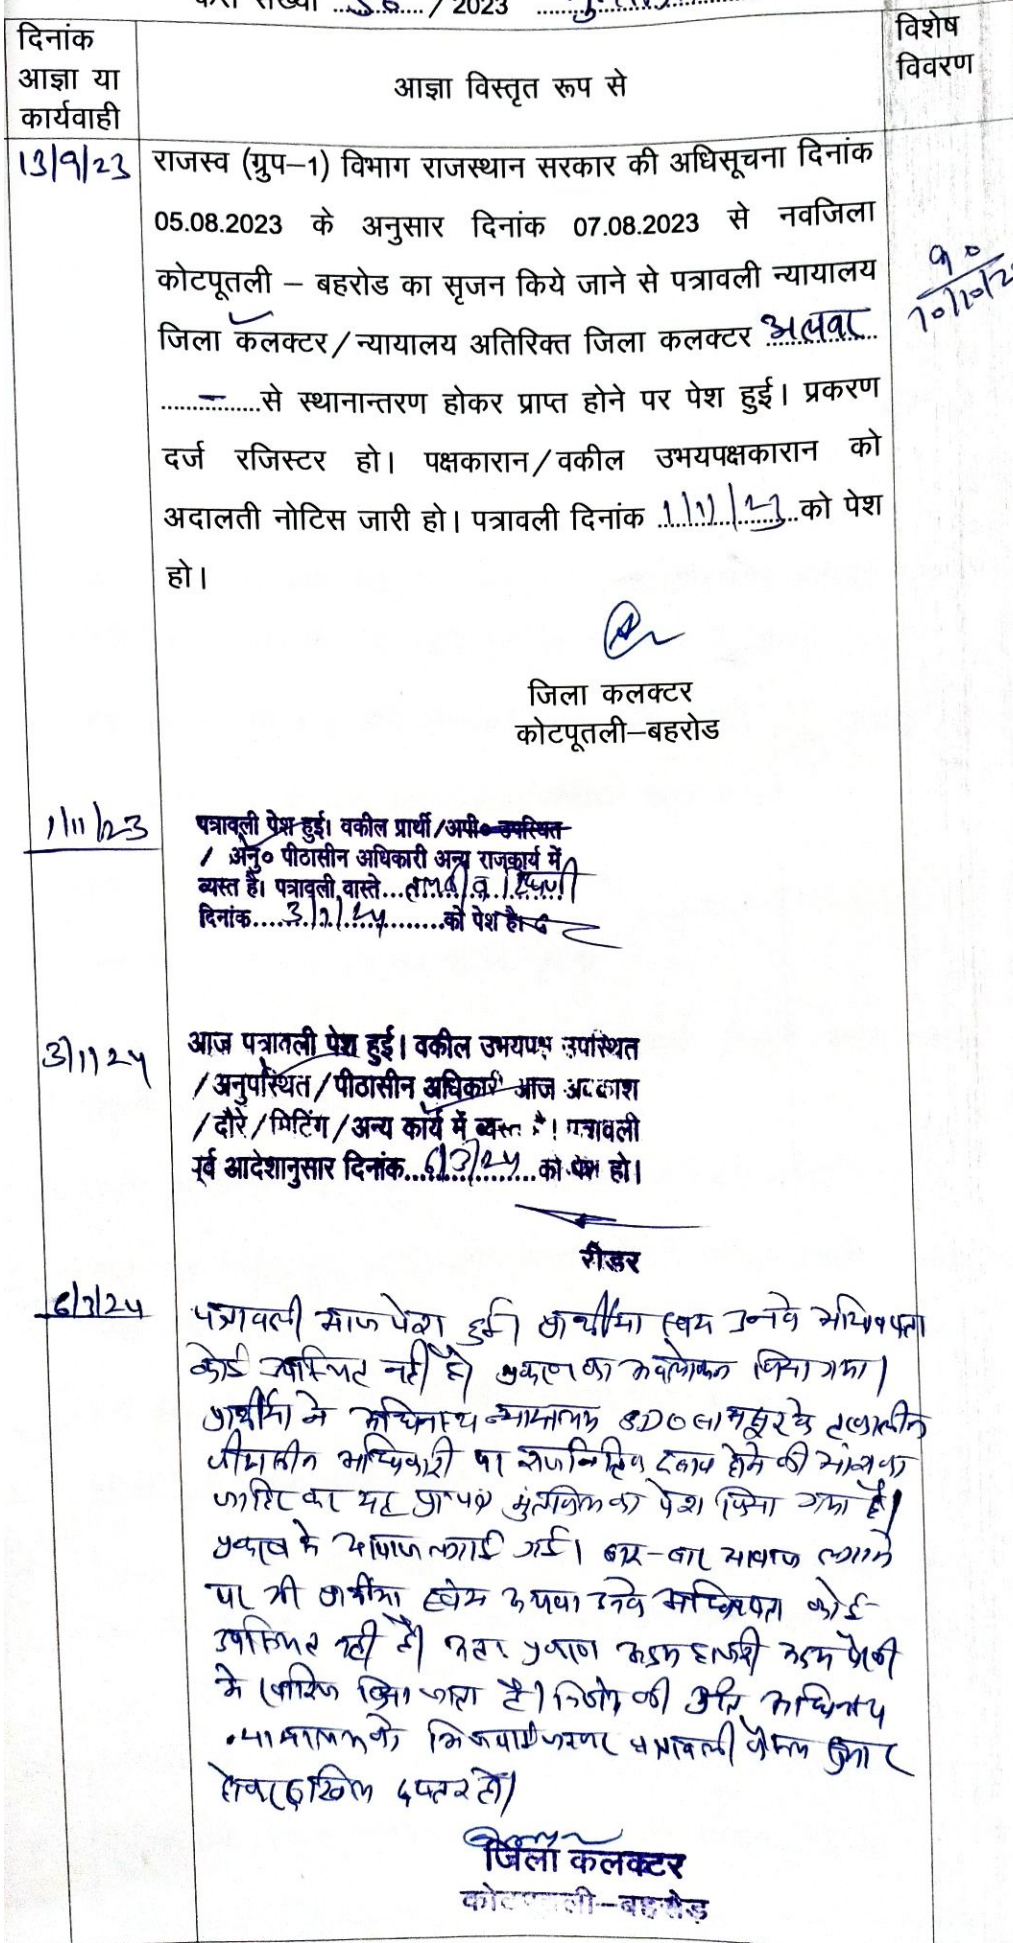 / 2023
दिनांक
आज्ञा या
कार्यवाही
आज्ञा विस्तृत रूप से
विशेष
विवरण
13/9/23
राजस्व (ग्रुप–1) विभाग राजस्थान सरकार की अधिसूचना दिनांक
05.08.2023 के अनुसार दिनांक 07.08.2023 से नवजिला
कोटपूतली – बहरोड का सृजन किये जाने से पत्रावली न्यायालय
जिला कलक्टर/न्यायालय अतिरिक्त जिला कलक्टर अलवर
से स्थानान्तरण होकर प्राप्त होने पर पेश हुई। प्रकरण
दर्ज रजिस्टर हो। पक्षकारान/वकील उभयपक्षकारान को
अदालती नोटिस जारी हो। पत्रावली दिनांक 1/11/23 को पेश
हो।
जिला कलक्टर
कोटपूतली–बहरोड
1/11/23
पत्रावली पेश हुई। वकील प्रार्थी/अपी० उपस्थित
/ अनु० पीठासीन अधिकारी अन्य राजकार्य में
व्यस्त है। पत्रावली वास्ते
दिनांक 3/1/24 को पेश है।
3/1/24
आज पत्रावली पेश हुई। वकील उभयपक्ष उपस्थित
/अनुपस्थित/पीठासीन अधिकारी आज अवकाश
/दौरे/मिटिंग/अन्य कार्य में व्यस्त है। पत्रावली
पूर्व आदेशानुसार दिनांक 6/3/24 को पेश हो।
रीडर
6/3/24
पत्रावली आज पेश हुई। प्रार्थीया स्वयं उनके अधिवक्ता
कोई उपस्थित नहीं है। प्रकरण का अवलोकन किया गया।
प्रार्थीया ने अधिनस्थ न्यायालय SDO के तत्कालीन
पीठासीन अधिकारी पर राजनितिक दबाव होने की आशंका
जाहिर कर यह प्रा० पत्र मुंतकिल का पेश किया गया है।
प्रकरण के आवाज लगाई गई। बार-बार आवाज लगाने
पर भी प्रार्थीया स्वयं अथवा उनके अधिवक्ता कोई
उपस्थित नहीं है। अतः प्रकरण अदम हाजरी अदम पैरवी
में खारिज किया जाता है। निर्णय की प्रति अधिनस्थ
न्यायालय को भिजवाई जाकर पत्रावली फैसल शुमार
होकर दाखिल दफ्तर हो।
जिला कलक्टर
कोटपूतली–बहरोड़